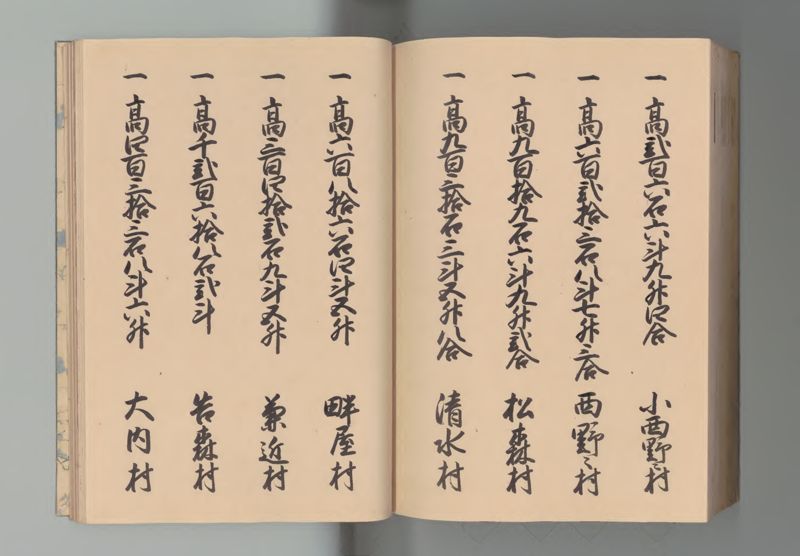 一 高弐百六石六斗九升四合 小西野々村
一 高六百弐拾三石八斗七升三合 西野々村
一 高九百拾九石六斗九升弐合 松森村
一 高九百三拾石三斗五升八合 清水村
一 高六百八拾六石四斗五升 畔屋村
一 高三百四拾弐石九斗五升 兼近村
一 高千弐百六拾八石弐斗 苔森村
一 高四百三拾三石八斗六升 大内村